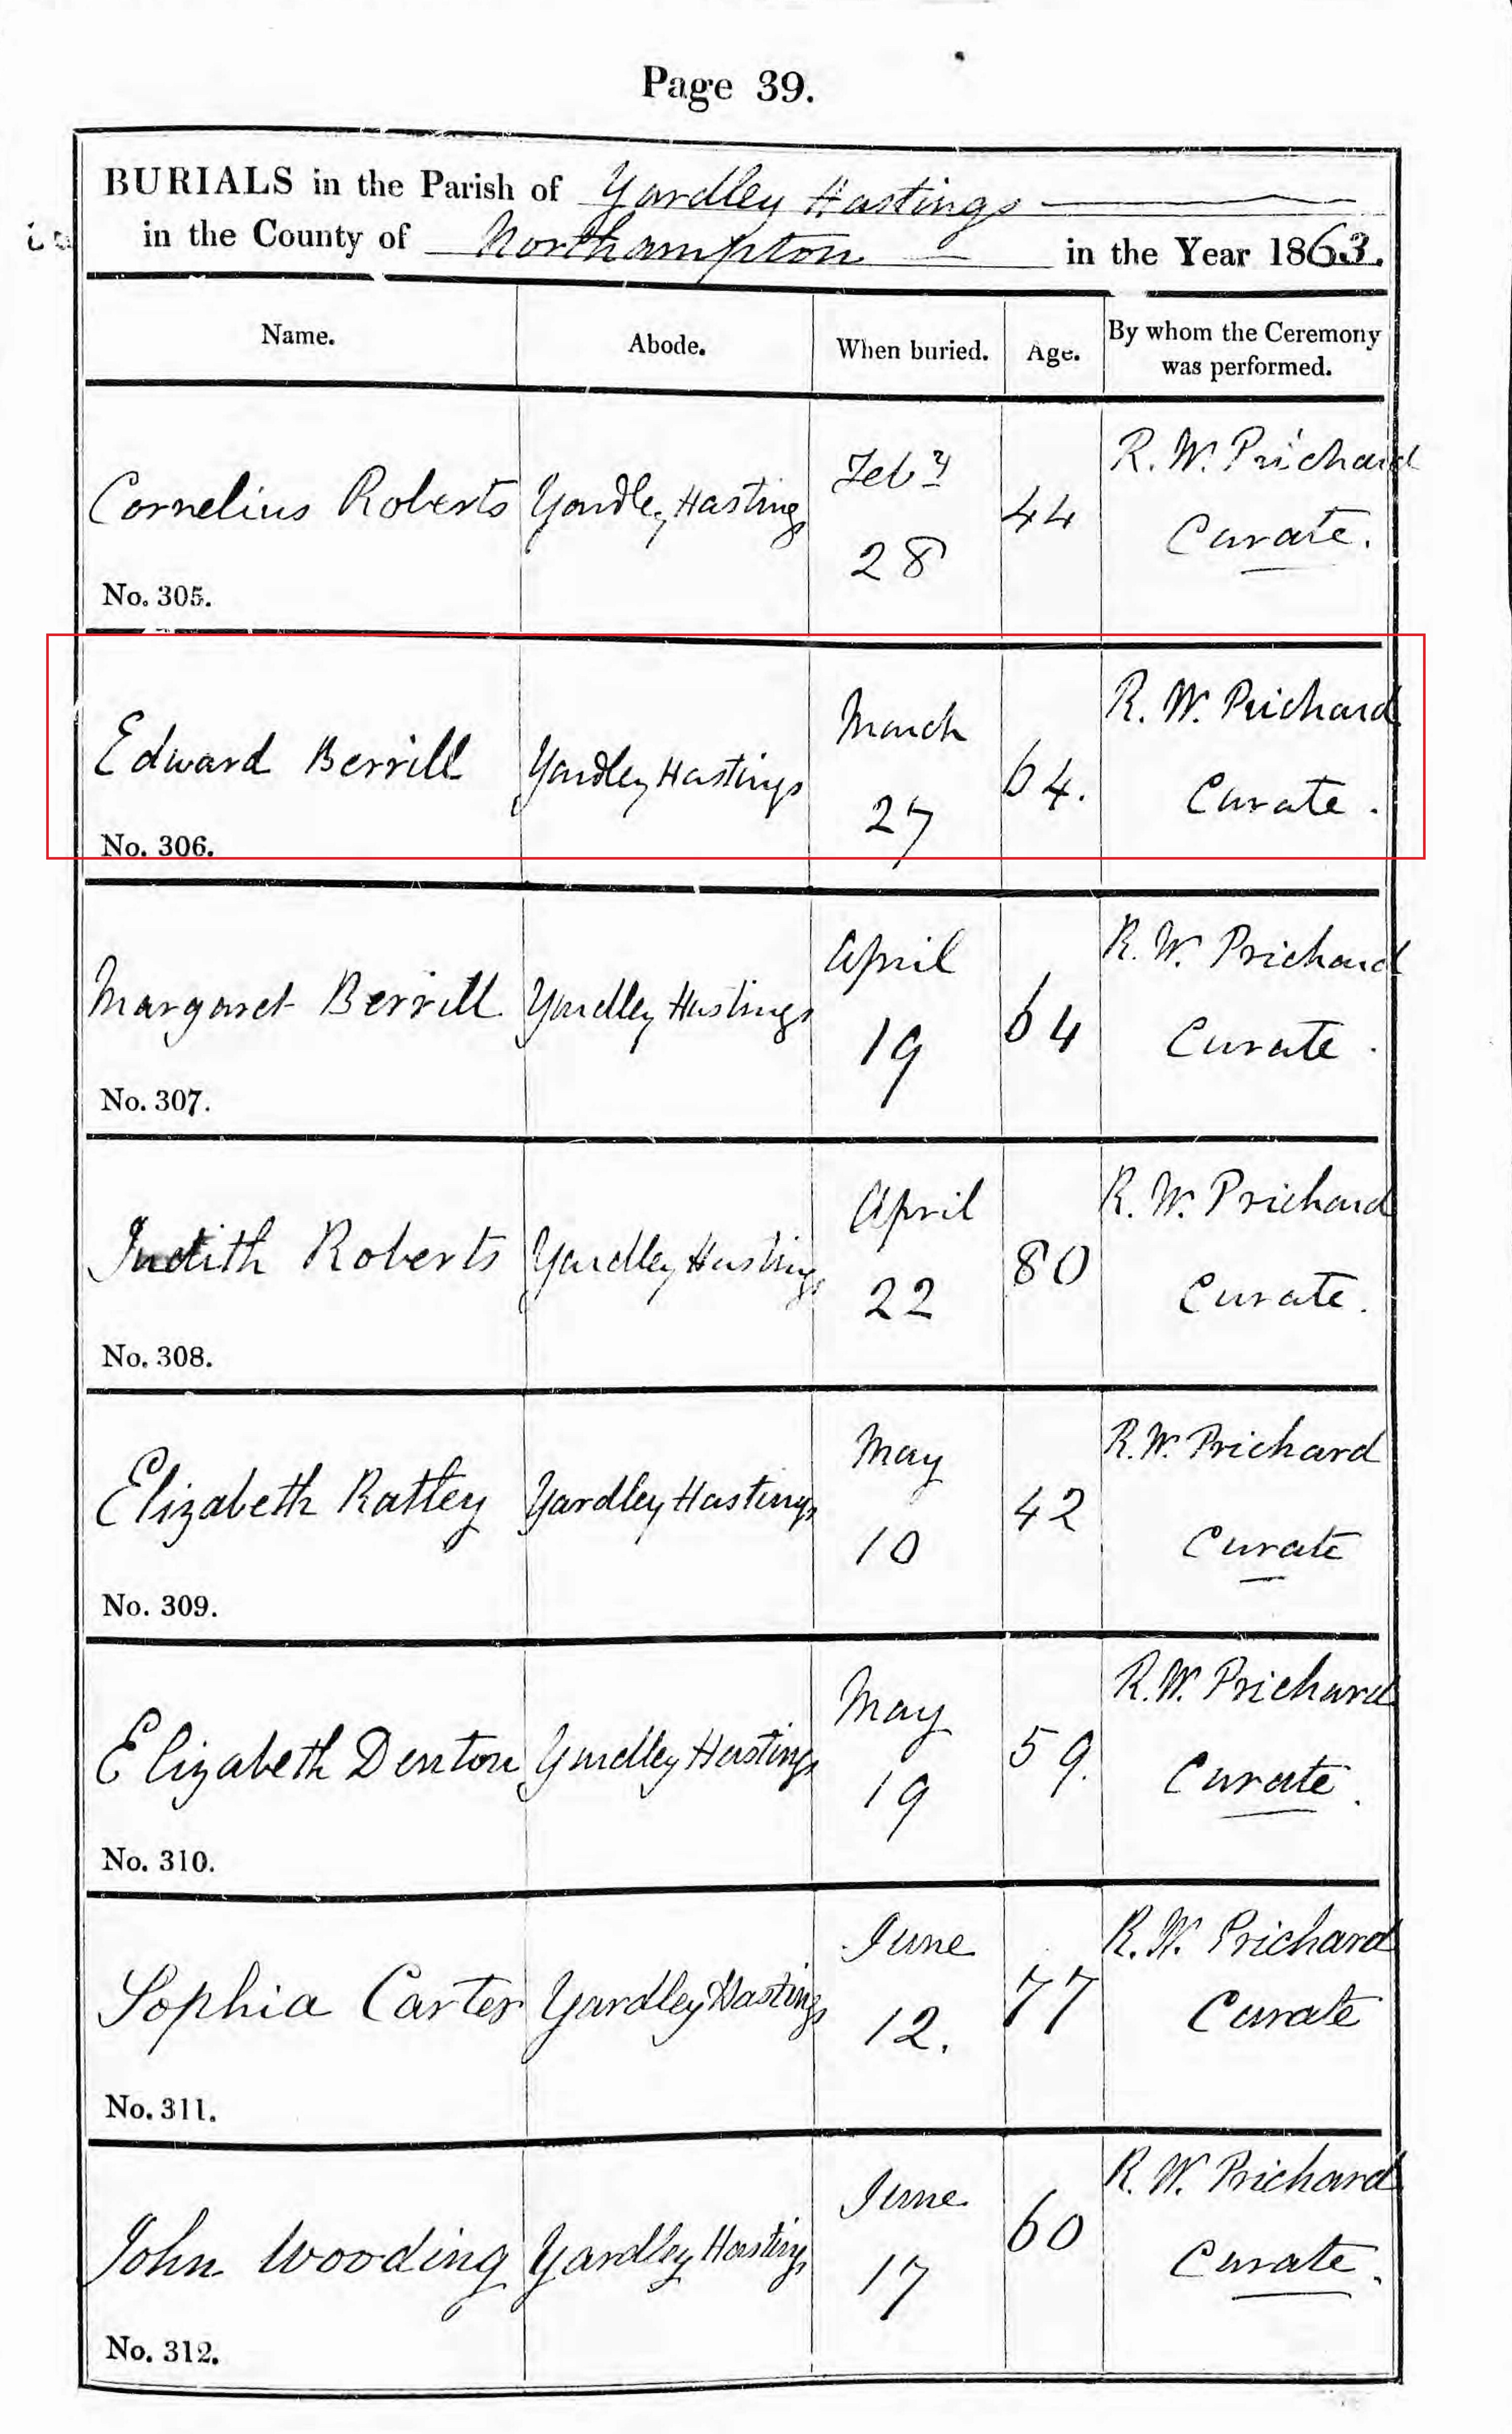 Page 39.
BURIALS in the Parish of Yardley Hastings
in the County of Northampton in the Year 1863.
Name. Abode. When buried. Age. By whom the Ceremony was performed.
Cornelius Roberts Yardley Hastings Feby 28 44 R. W. Prichard Curate.
No. 305.
Edward Berrill Yardley Hastings March 27 64. R. W. Prichard Curate.
No. 306.
Margaret Berrill Yardley Hastings April 19 64 R. W. Prichard Curate.
No. 307.
Judith Roberts Yardley Hastings April 22 80 R. W. Prichard Curate.
No. 308.
Elizabeth Ratley Yardley Hastings May 10 42 R. W. Prichard Curate
No. 309.
Elizabeth Denton Yardley Hastings May 19 59. R. W. Prichard Curate.
No. 310.
Sophia Carter Yardley Hastings June 12. 77 R. W. Prichard Curate
No. 311.
John Wooding Yardley Hastings June 17 60 R. W. Prichard Curate.
No. 312.